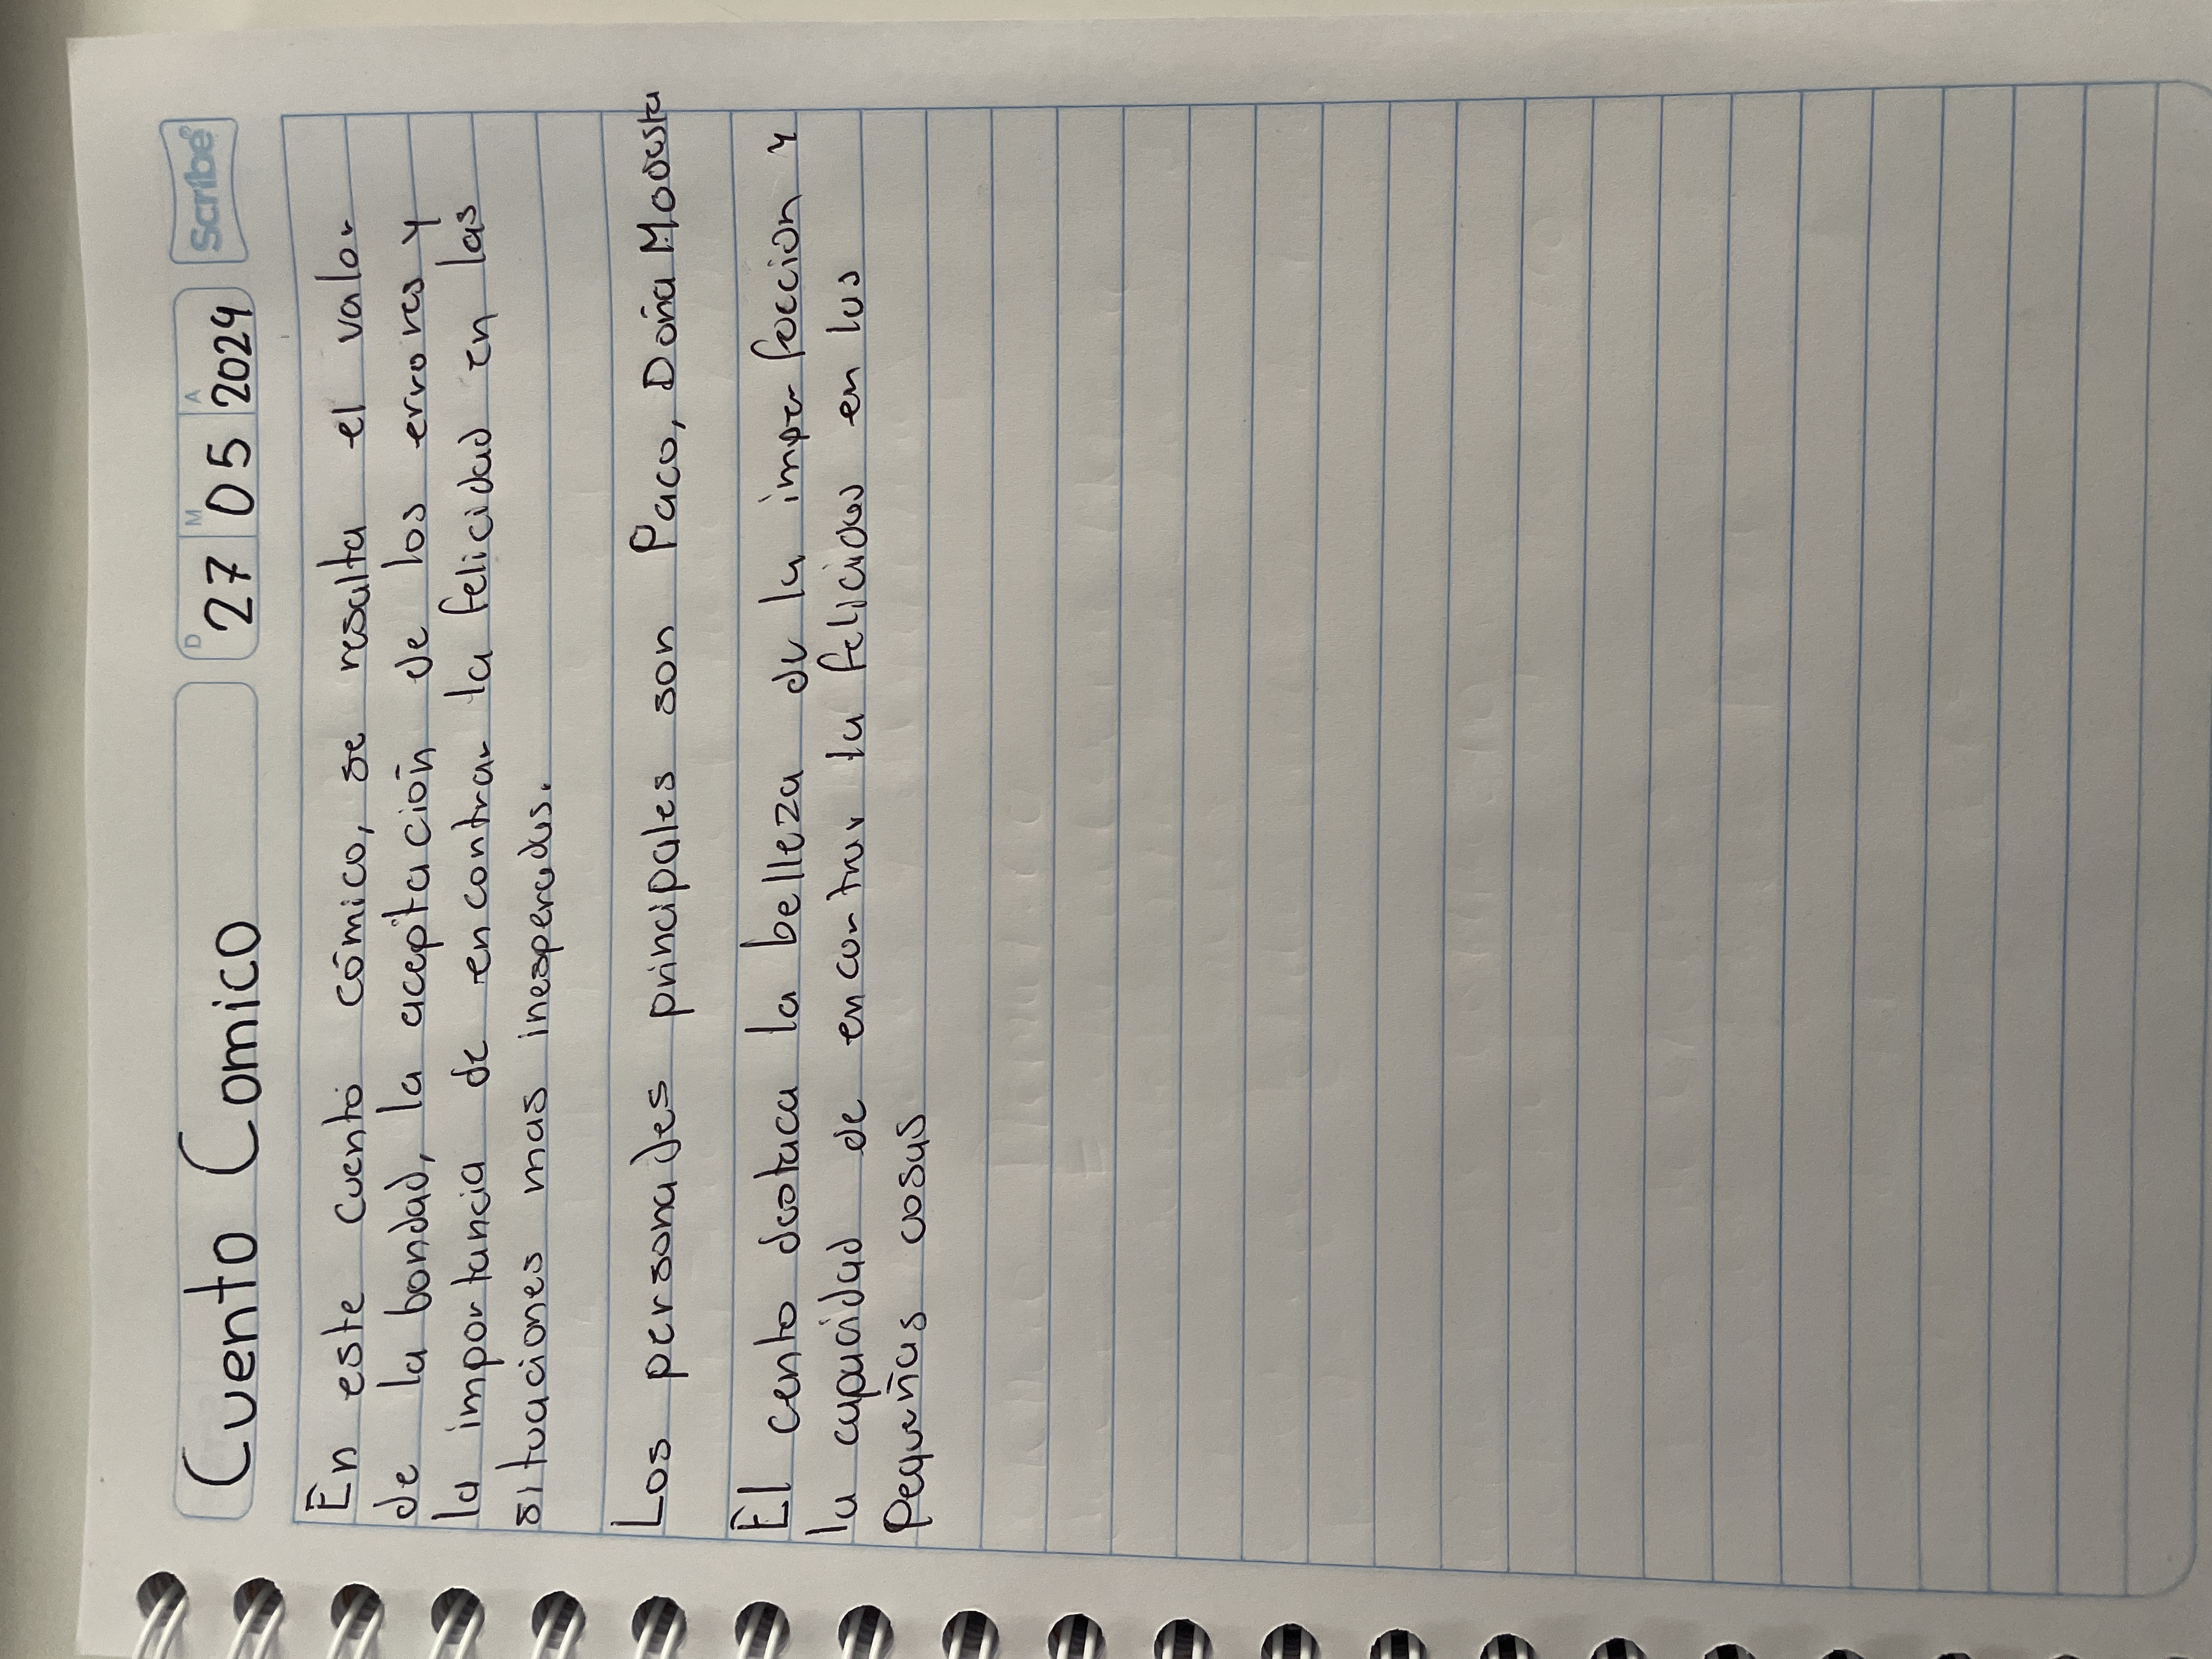 Cuento Comico
D M A
27 05 2024
Scribe®
En este cuento cómico, se resalta el valor
de la bondad, la aceptación de los errores y
la importancia de encontrar la felicidad en las
situaciones mas inesperadas.
Los personajes principales son Paco, Doña Modesta
El cento destaca la belleza de la imperfeccion y
la capacidad de encontrar la felicidad en las
Pequeñas cosas